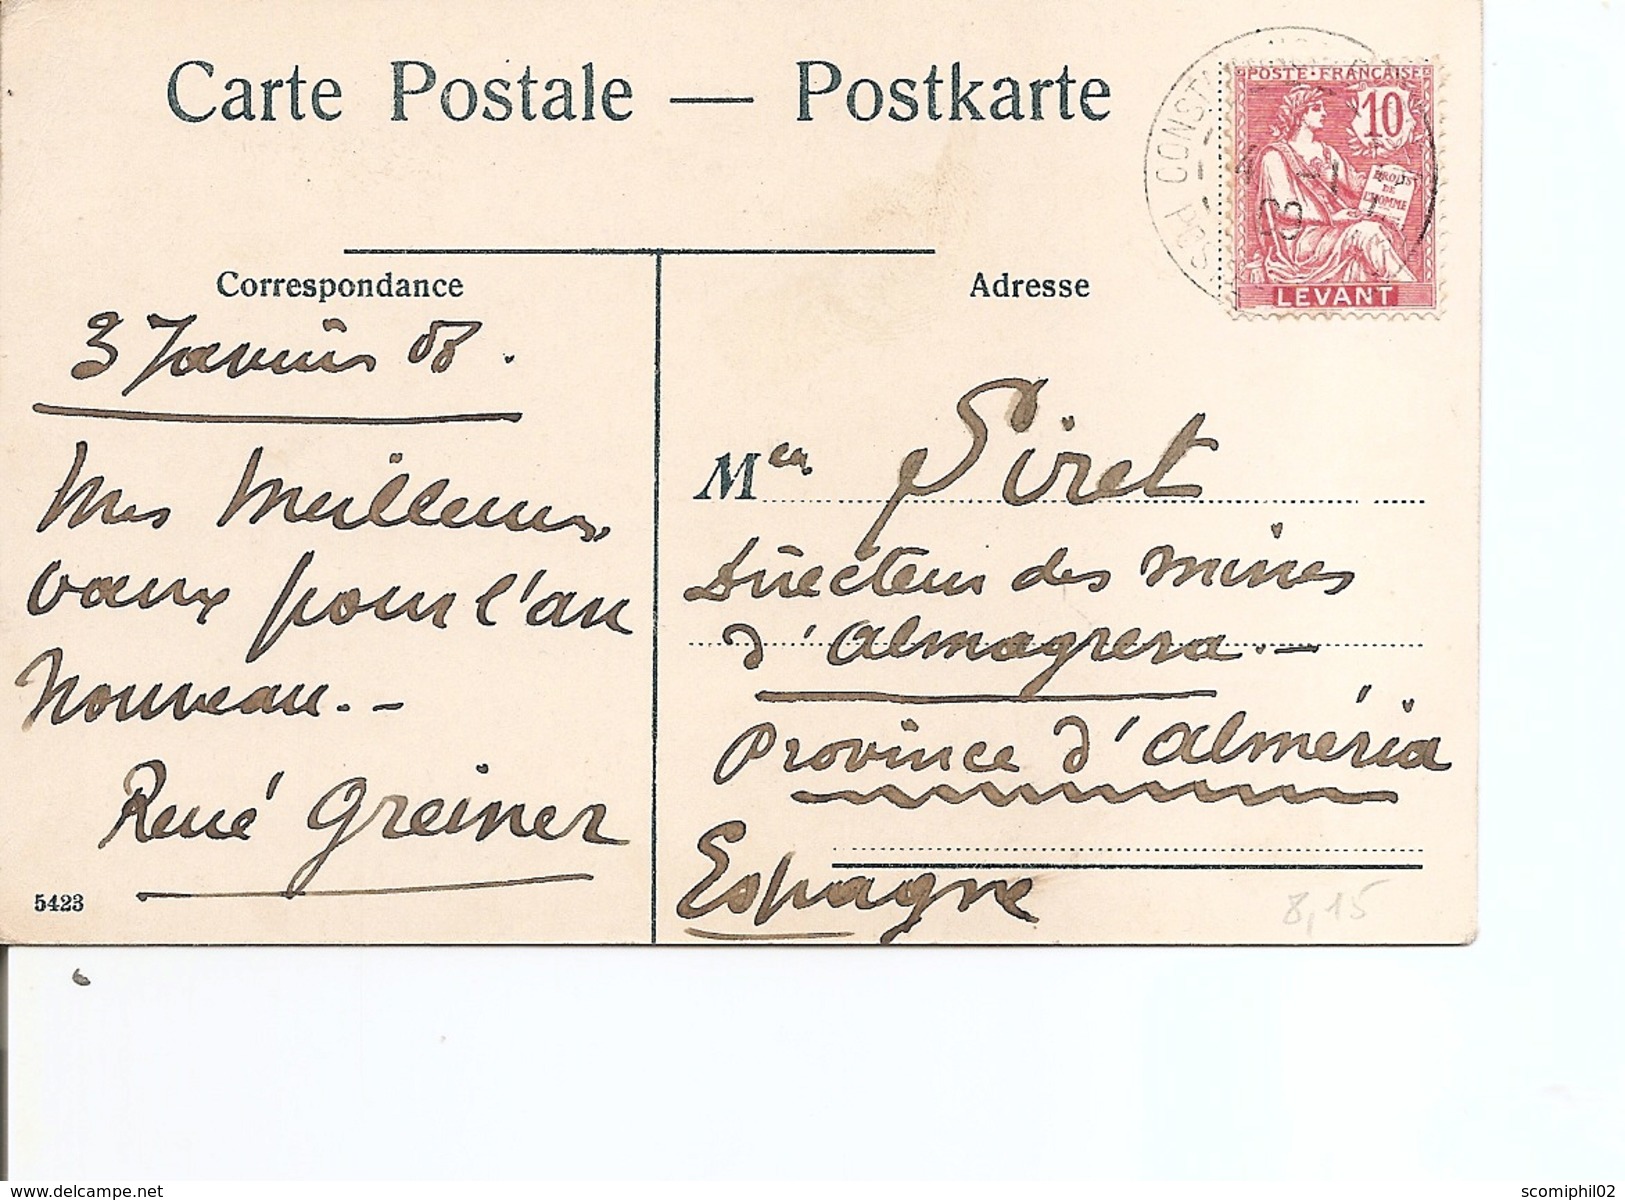 Carte Postale — Postkarte
POSTE·FRANÇAISE
10
DROITS
DE
L'HOMME
LEVANT
Correspondance
3 Janvier 08.
Mes Meilleurs
vœux pour l'an
Nouveau.-
René Greiner
5423
Adresse
M Siret
Directeur des mines
d'Almagrera.-
Province d'Alméria
Espagne
8,15
delcampe.net
scomiphil02